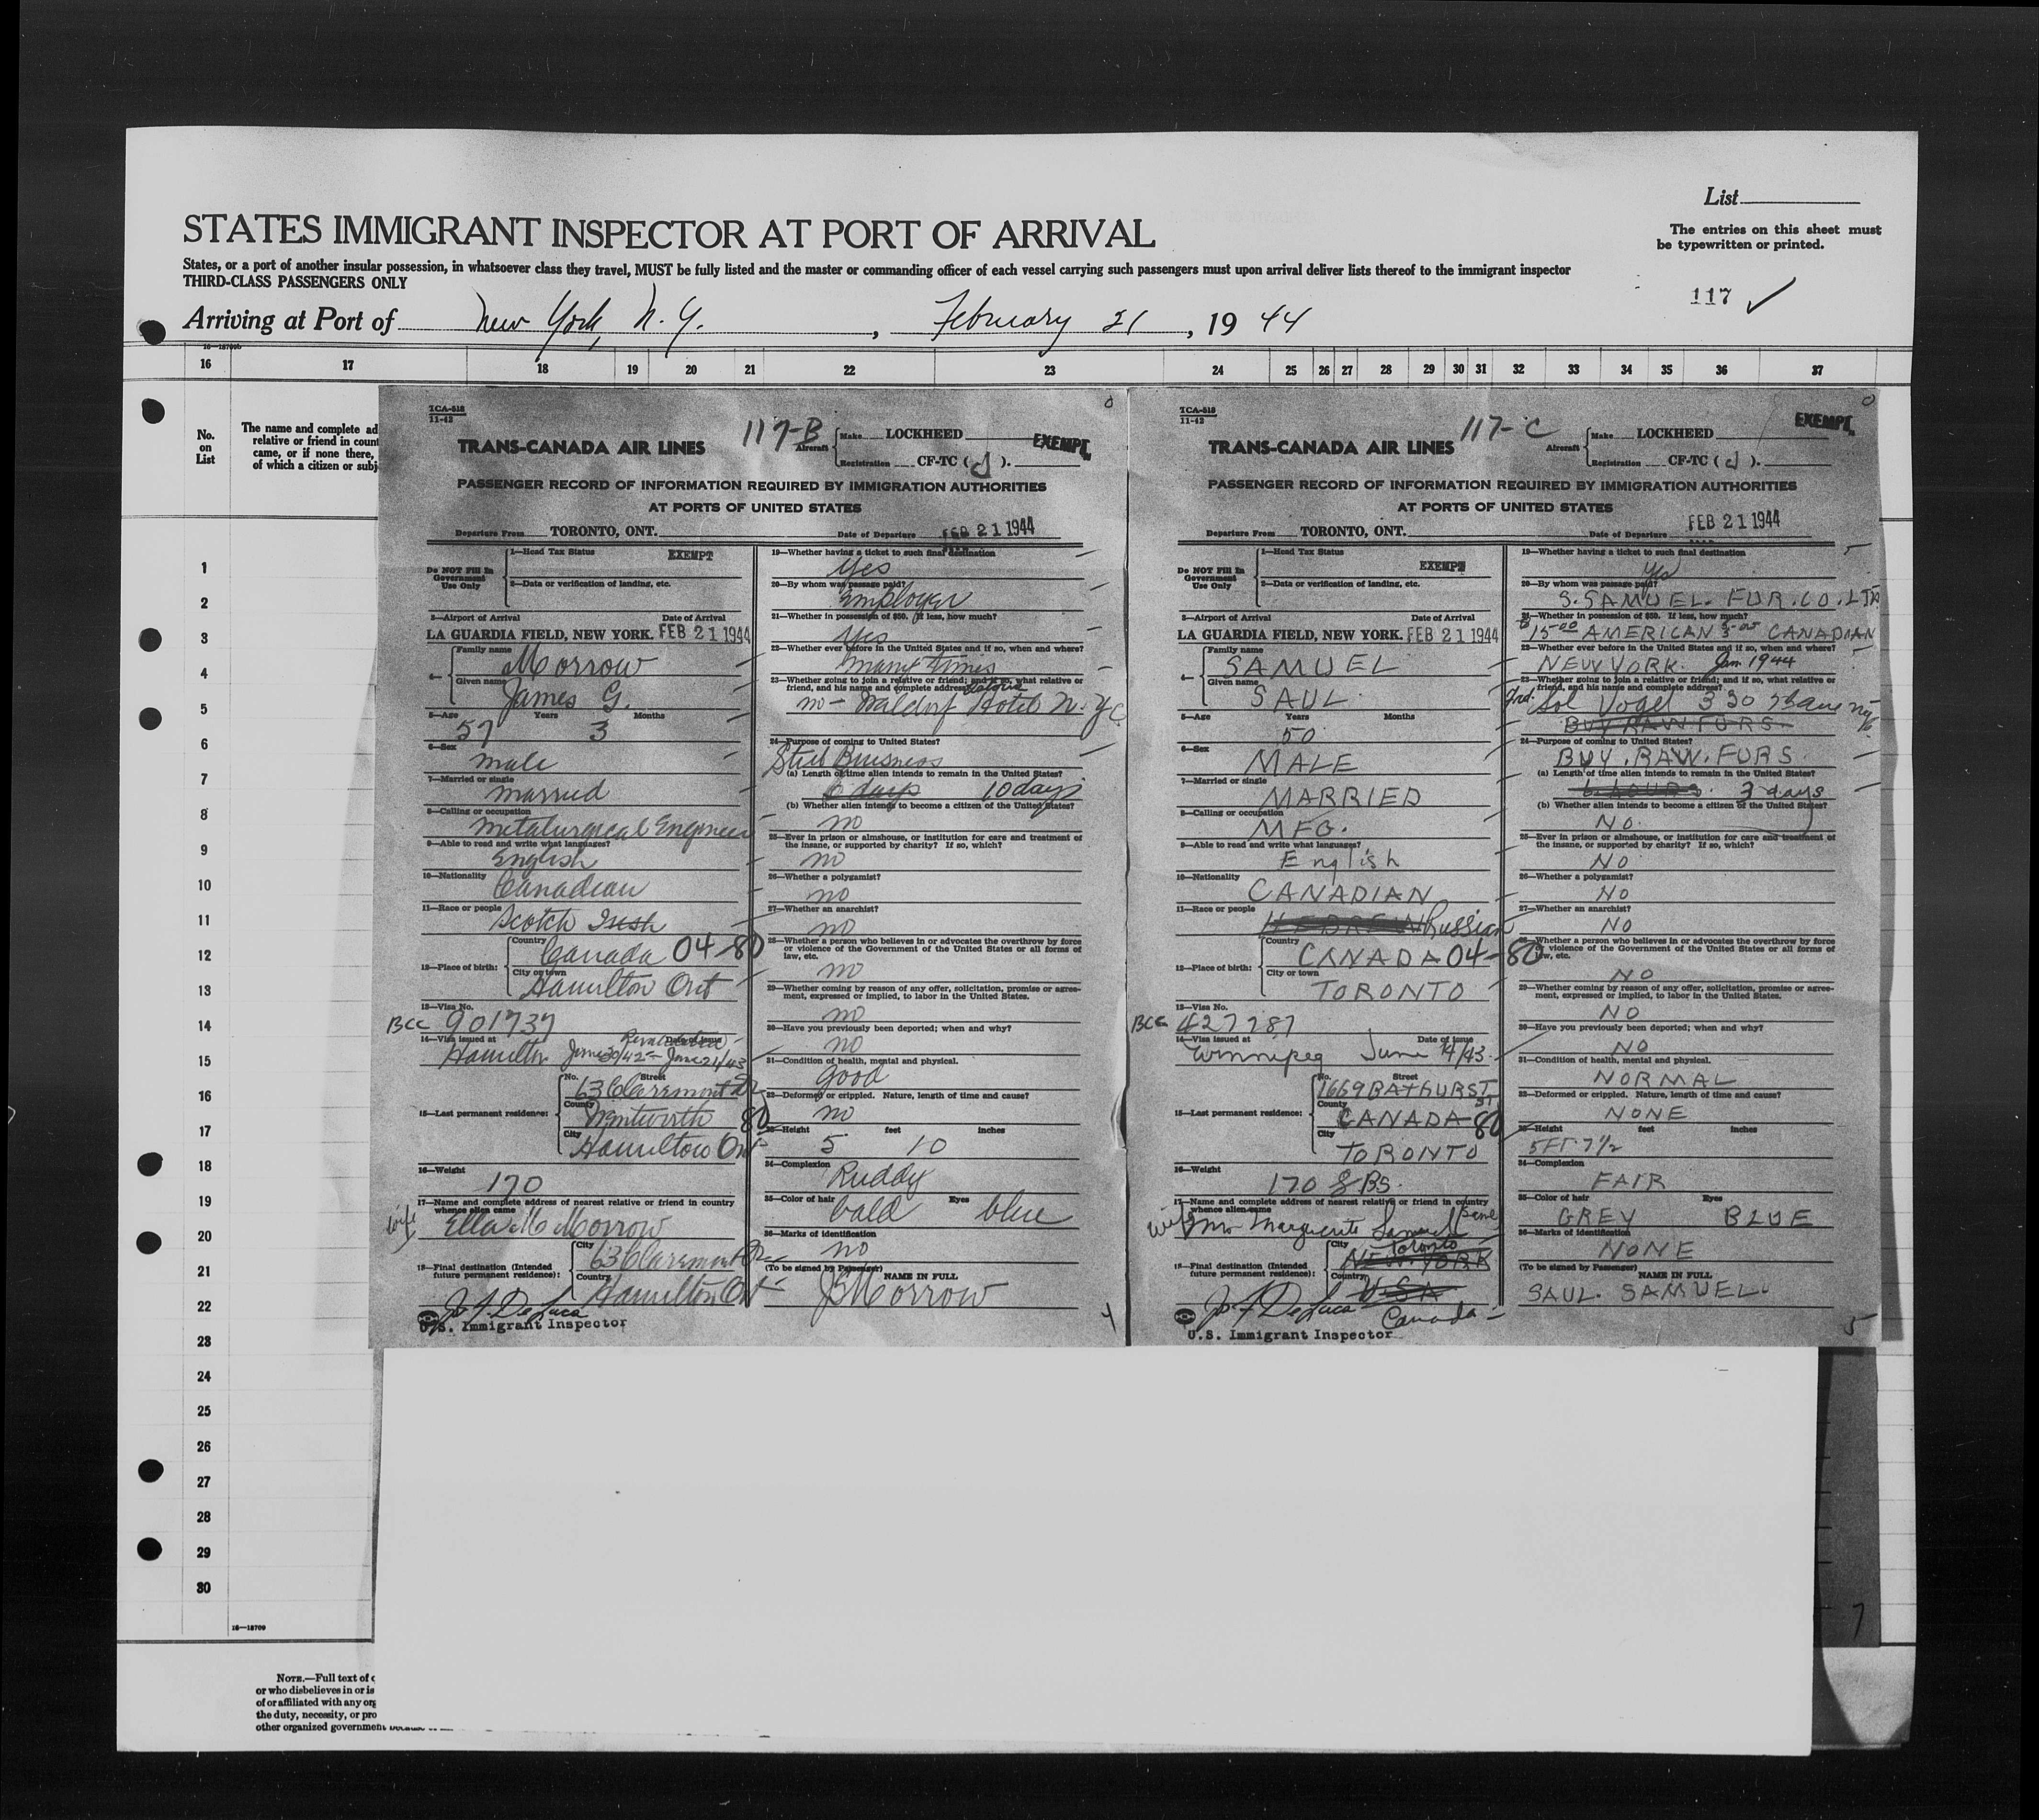 List
STATES IMMIGRANT INSPECTOR AT PORT OF ARRIVAL
The entries on this sheet must
be typewritten or printed.
States, or a port of another insular possession, in whatsoever class they travel, MUST be fully listed and the master or commanding officer of each vessel carrying such passengers must upon arrival deliver lists thereof to the immigrant inspector
THIRD-CLASS PASSENGERS ONLY
117 ✓
Arriving at Port of New York, N. Y., February 21, 19 44
16 17 18 19 20 21 22 23 24 25 26 27 28 29 30 31 32 33 34 35 36 37
No.
on
List
The name and complete ad
relative or friend in count
came, or if none there,
of which a citizen or subj
1
2
3
4
5
6
7
8
9
10
11
12
13
14
15
16
17
18
19
20
21
22
23
24
25
26
27
28
29
30
16—18709
NOTE.—Full text of
or who disbelieves in or is
of or affiliated with any org
the duty, necessity, or pro
other organized government
TCA-518
11-42
117-B
TRANS-CANADA AIR LINES
Aircraft
Make LOCKHEED
EXEMPT
Registration CF-TC (J).
PASSENGER RECORD OF INFORMATION REQUIRED BY IMMIGRATION AUTHORITIES
AT PORTS OF UNITED STATES
Departure From TORONTO, ONT. Date of Departure FEB 21 1944
Do NOT Fill In
Government
Use Only
1—Head Tax Status EXEMPT
2—Data or verification of landing, etc.
3—Airport of Arrival Date of Arrival
LA GUARDIA FIELD, NEW YORK. FEB 21 1944
4—
Family name
Morrow
Given name
James G.
5—Age Years Months
57 3
6—Sex
male
7—Married or single
married
8—Calling or occupation
Metalurgical Engineer
9—Able to read and write what languages?
English
10—Nationality
Canadian
11—Race or people
Scotch Irish
12—Place of birth:
Country
Canada 04-80
City or town
Hamilton Ont
13—Visa No.
BCC 901737
14—Visa issued at Date of issue
Hamilton June 30/42 - June 21/43
15—Last permanent residence:
No. Street
63 Claremont Dr
County
Wentworth 80
City
Hamilton Ont
16—Weight
170
17—Name and complete address of nearest relative or friend in country
whence alien came
wife Ella M Morrow
18—Final destination (Intended
future permanent residence):
City
63 Claremont Dr
Country
Hamilton Ont
U.S. Immigrant Inspector
19—Whether having a ticket to such final destination
Yes
20—By whom was passage paid?
Employer
21—Whether in possession of $50. If less, how much?
Yes
22—Whether ever before in the United States and if so, when and where?
many times
23—Whether going to join a relative or friend; and if so, what relative or
friend, and his name and complete address?
no - Waldorf Astoria Hotel N.Y.C.
24—Purpose of coming to United States?
Steel Buisness
(a) Length of time alien intends to remain in the United States?
10 days
(b) Whether alien intends to become a citizen of the United States?
no
25—Ever in prison or almshouse, or institution for care and treatment of
the insane, or supported by charity? If so, which?
no
26—Whether a polygamist?
no
27—Whether an anarchist?
no
28—Whether a person who believes in or advocates the overthrow by force
or violence of the Government of the United States or all forms of
law, etc.
no
29—Whether coming by reason of any offer, solicitation, promise or agree-
ment, expressed or implied, to labor in the United States.
no
30—Have you previously been deported; when and why?
no
31—Condition of health, mental and physical.
good
32—Deformed or crippled. Nature, length of time and cause?
no
33—Height feet inches
5 10
34—Complexion
Ruddy
35—Color of hair Eyes
bald blue
36—Marks of identification
no
(To be signed by Passenger) NAME IN FULL
JGMorrow
4
TCA-518
11-42
117-C
TRANS-CANADA AIR LINES
Aircraft
Make LOCKHEED
EXEMPT
Registration CF-TC (J).
PASSENGER RECORD OF INFORMATION REQUIRED BY IMMIGRATION AUTHORITIES
AT PORTS OF UNITED STATES
Departure From TORONTO, ONT. Date of Departure FEB 21 1944
Do NOT Fill In
Government
Use Only
1—Head Tax Status EXEMPT
2—Data or verification of landing, etc.
3—Airport of Arrival Date of Arrival
LA GUARDIA FIELD, NEW YORK. FEB 21 1944
4—
Family name
SAMUEL
Given name
SAUL
5—Age Years Months
50
6—Sex
MALE
7—Married or single
MARRIED
8—Calling or occupation
MFG.
9—Able to read and write what languages?
English
10—Nationality
CANADIAN
11—Race or people
HEBREW Russian
12—Place of birth:
Country
CANADA 04-80
City or town
TORONTO
13—Visa No.
BCC 427787
14—Visa issued at Date of issue
Winnipeg June 14/43
15—Last permanent residence:
No. Street
1669 BATHURST ST
County
CANADA 80
City
TORONTO
16—Weight
170 LBS.
17—Name and complete address of nearest relative or friend in country
whence alien came
wife Mrs Marguerite Samuel same
18—Final destination (Intended
future permanent residence):
City
Toronto
NEW YORK
Country
USA
Canada
U.S. Immigrant Inspector
19—Whether having a ticket to such final destination
Yes
20—By whom was passage paid?
S. SAMUEL. FUR. CO. LTD
21—Whether in possession of $50. If less, how much?
$15.00 AMERICAN CANADIAN
22—Whether ever before in the United States and if so, when and where?
NEW YORK. Jan 1944
23—Whether going to join a relative or friend; and if so, what relative or
friend, and his name and complete address?
frd: Sol Vogel 330 7th ave nyc
BUY RAW FURS
24—Purpose of coming to United States?
BUY. RAW. FURS
(a) Length of time alien intends to remain in the United States?
3 days
(b) Whether alien intends to become a citizen of the United States?
NO.
25—Ever in prison or almshouse, or institution for care and treatment of
the insane, or supported by charity? If so, which?
NO
26—Whether a polygamist?
NO
27—Whether an anarchist?
NO
28—Whether a person who believes in or advocates the overthrow by force
or violence of the Government of the United States or all forms of
law, etc.
NO
29—Whether coming by reason of any offer, solicitation, promise or agree-
ment, expressed or implied, to labor in the United States.
NO
30—Have you previously been deported; when and why?
NO
31—Condition of health, mental and physical.
NORMAL
32—Deformed or crippled. Nature, length of time and cause?
NONE
33—Height feet inches
5 FT 7 1/2
34—Complexion
FAIR
35—Color of hair Eyes
GREY BLUE
36—Marks of identification
NONE
(To be signed by Passenger) NAME IN FULL
SAUL. SAMUEL
5
7